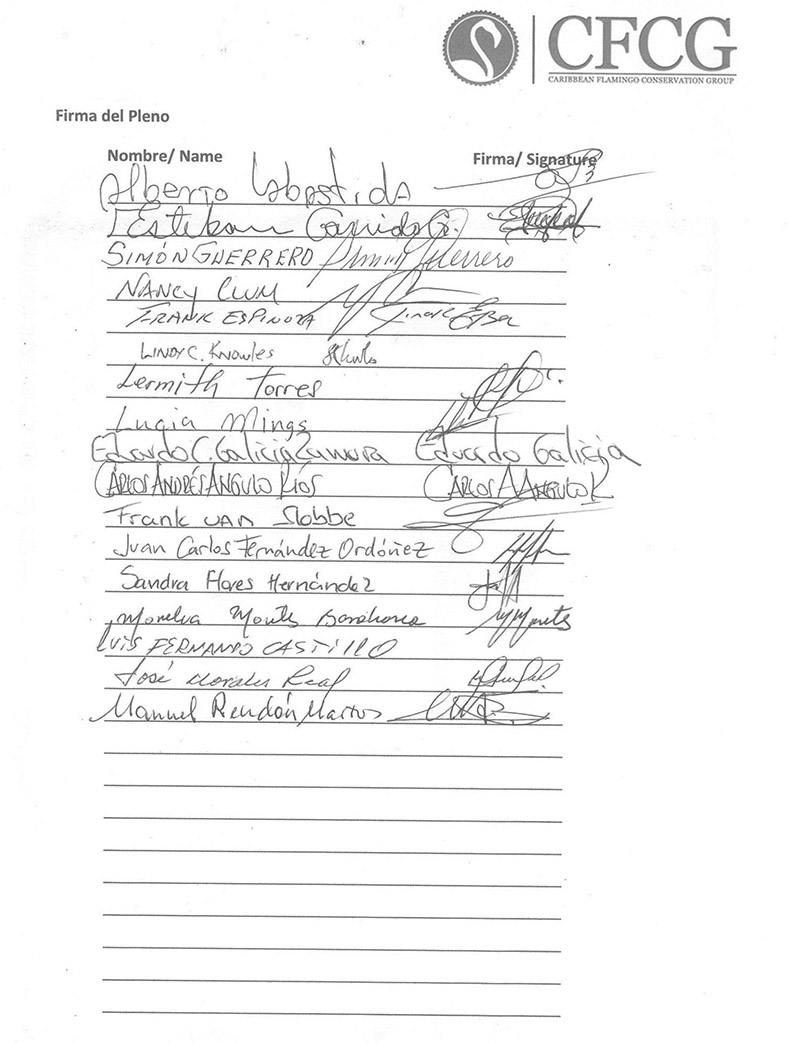 CFCG
CARIBBEAN FLAMINGO CONSERVATION GROUP
Firma del Pleno
Nombre/ Name Firma/ Signature
Alberto Labastida
Esteban Garrido G.
SIMÓN GUERRERO Simón Guerrero
NANCY CLUM
FRANK ESPINOZA
LINDY C. Knowles
Lermith Torres
Lucia Mings
Eduardo C. Galicia Zamora Eduardo Galicia
CARLOS ANDRÉS ANGULO RÍOS CARLOS A ANGULO R
Frank van Slobbe
Juan Carlos Fernández Ordóñez
Sandra Flores Hernández
Morelva Montes
LUIS FERNANDO CASTILLO
José Morales Real
Manuel Rendón Martos